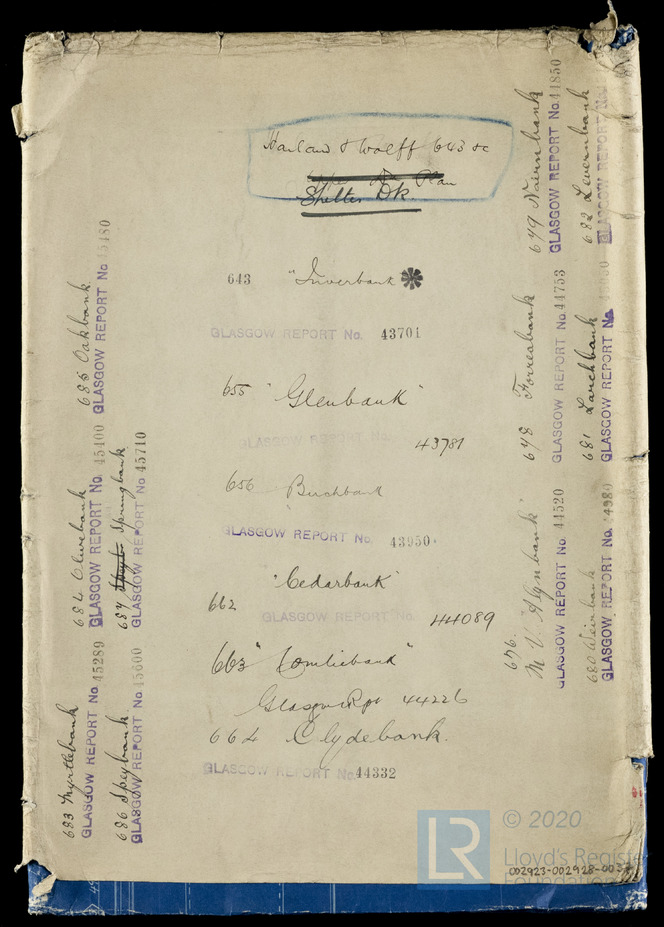 Harland & Wolff 643 &c
Plan
Shelter Dk.
643 "Inverbank"
GLASGOW REPORT No. 43701
655 "Glenbank"
GLASGOW REPORT No. 43781
656 Birchbank
GLASGOW REPORT No. 43950
"Cedarbank"
662
GLASGOW REPORT No. 44089
663 "Comliebank"
Glasgow Rpt 44226
664 Clydebank.
GLASGOW REPORT No. 44332
676.
M.V. "Alynbank"
GLASGOW REPORT No. 44520
678 Forresbank
GLASGOW REPORT No. 44753
679 Nairnbank
GLASGOW REPORT No. 44850
680 Weirbank
GLASGOW REPORT No.
681 Larchbank
GLASGOW REPORT No.
682 Levernbank
GLASGOW REPORT No.
683 Myrtlebank
GLASGOW REPORT No. 45289
684 Olivebank
GLASGOW REPORT No. 45400
685 Oakbank.
GLASGOW REPORT No 45480
686 Speybank
GLASGOW REPORT No. 45600
687 Springbank
GLASGOW REPORT No. 45710
LR
© 2020
Lloyd's Register
Foundation
002923-002928-003